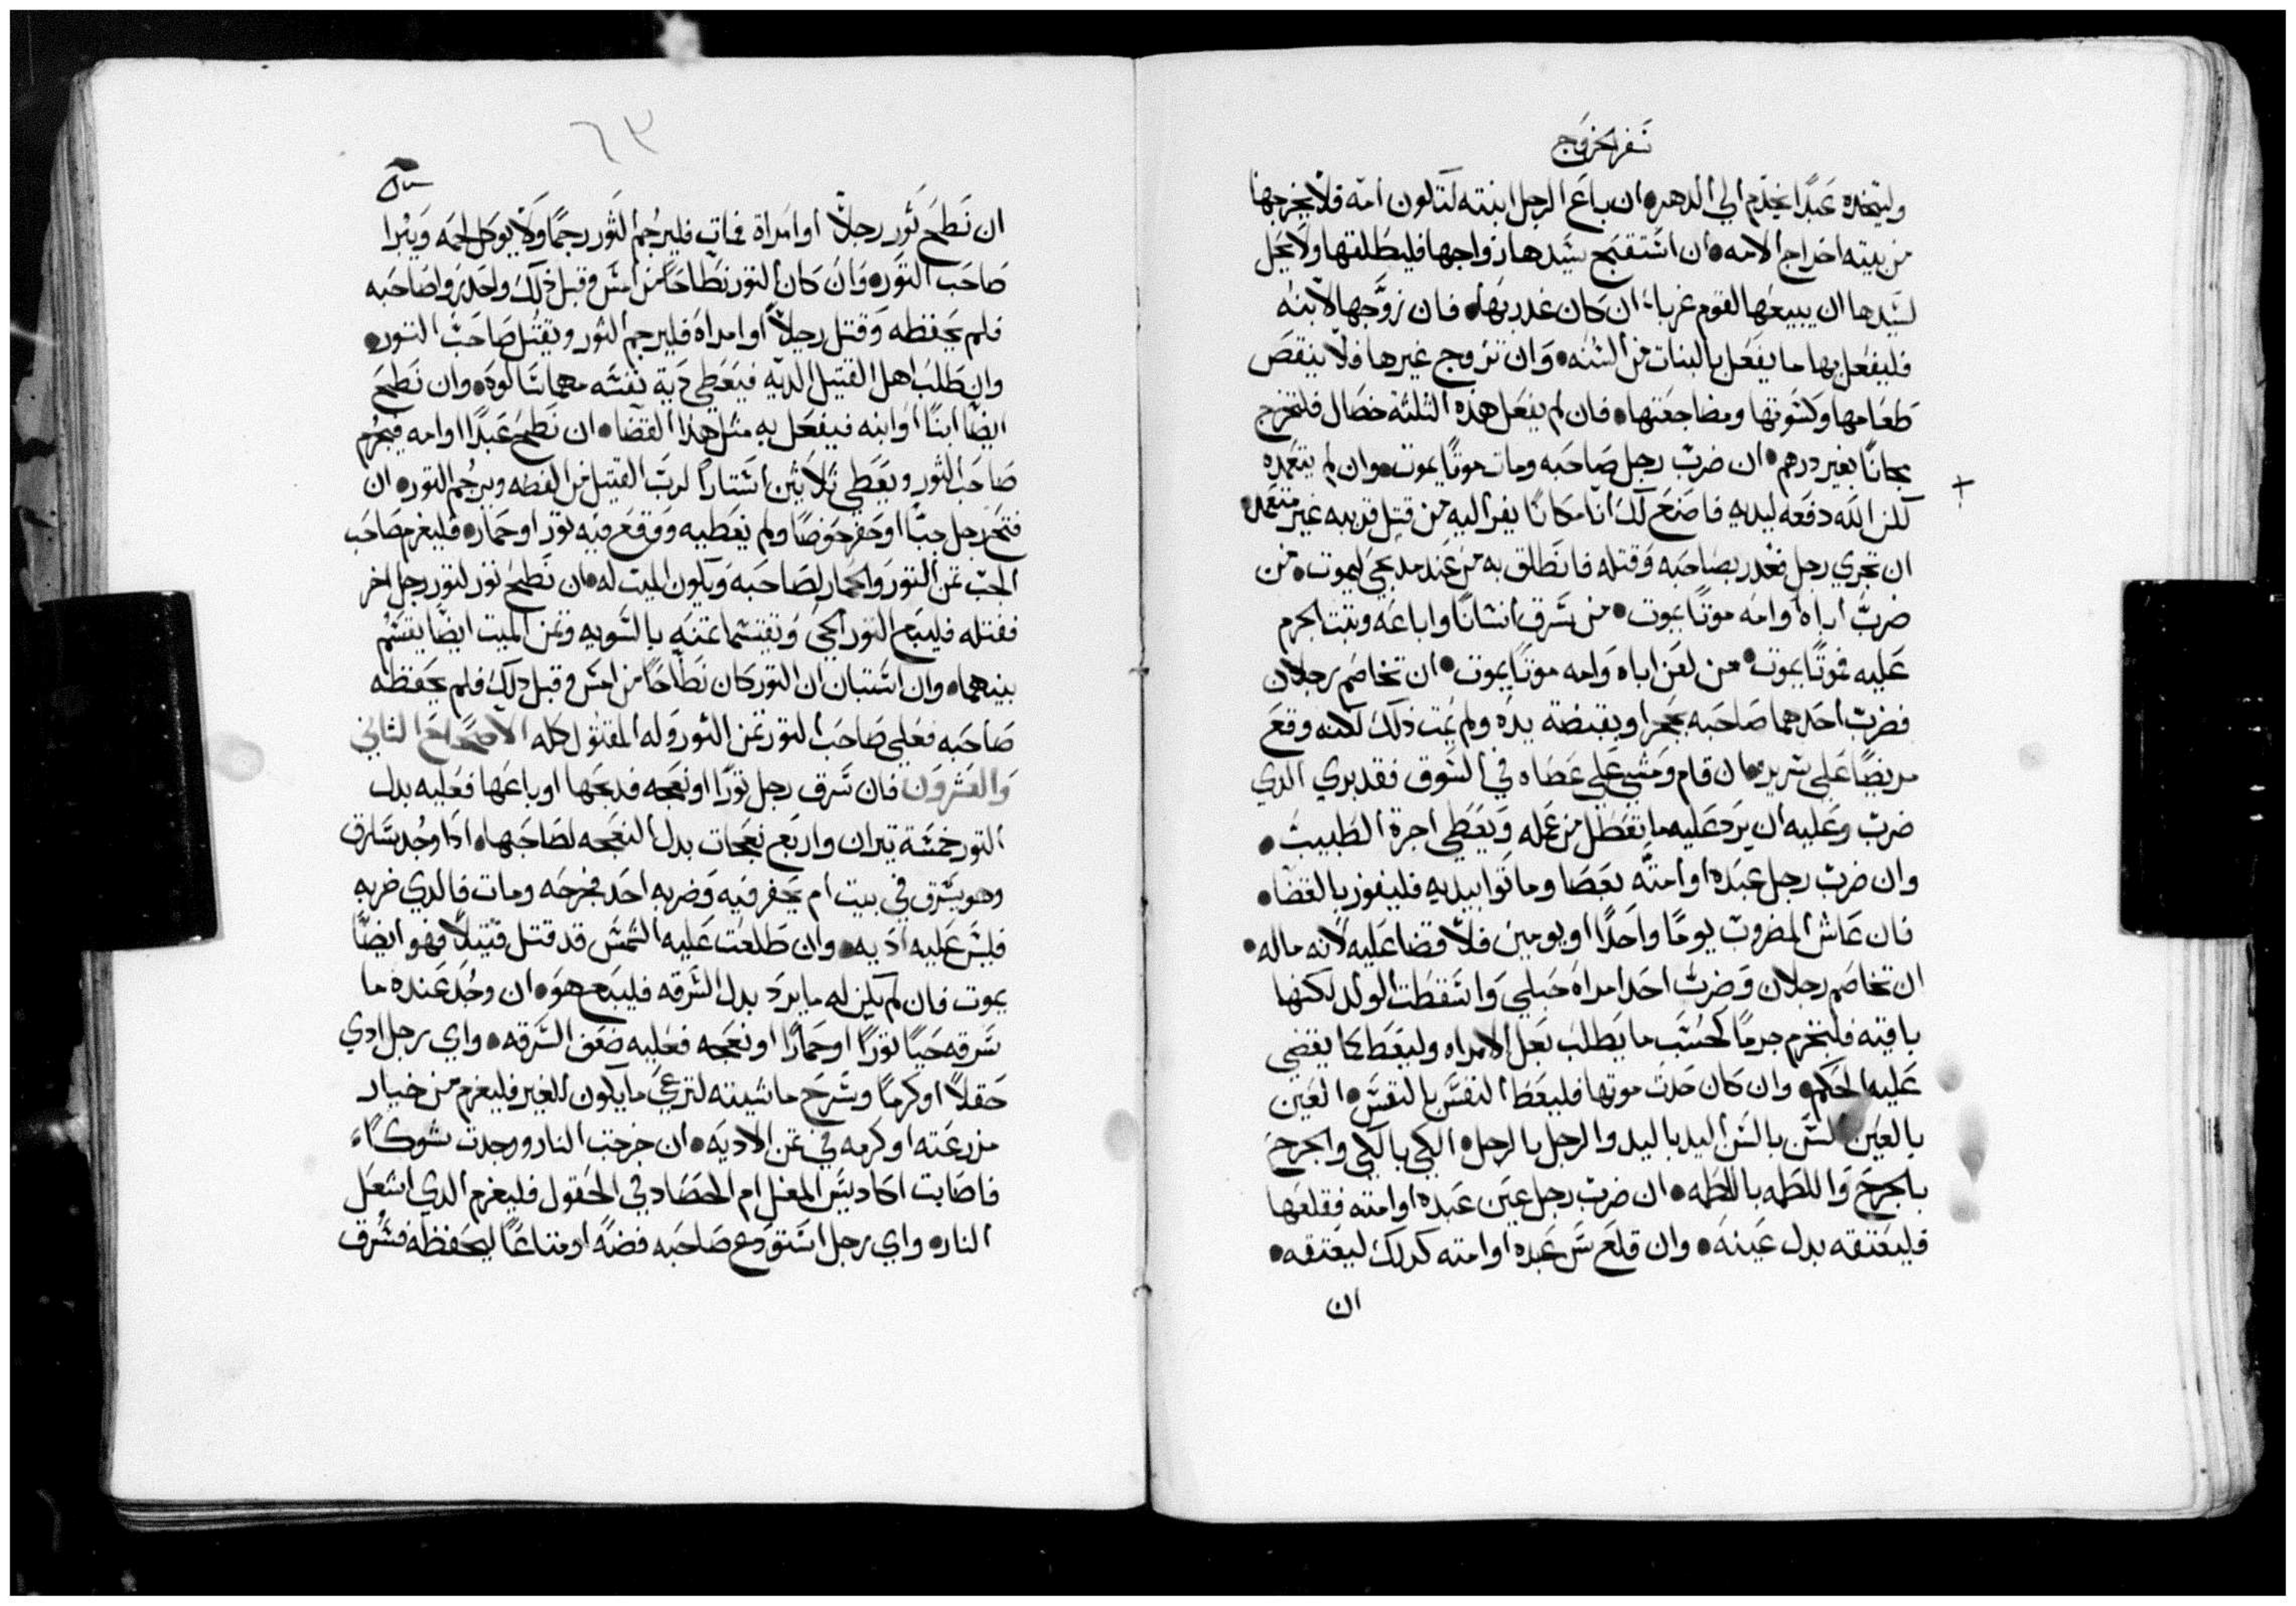 سفر الخروج
وليتخده عبدًا يخدم الي الدهر • ان باع الرجل ابنته لتكون امه فلا يخرجها
من بيته اخراج الامه • ان استقبح سيدها زواجها فليطلقها ولا يحل
لسيدها ان يبيعها لقوم غربا ان كان غدر بها • فان زوجها لابنه
فليفعل بها ما يفعل بالبنات من السنه • وان تزوج غيرها فلا ينقص
طعامها وكسوتها ومضاجعتها • فان لم يفعل هذه الثلثة خصال فلتخرج
مجانًا بغير درهم • ان ضرب رجل صاحبه ومات موتًا يموت • وان لم يتعمده
لكن الله دفعه ليديه فاصنع لك انا مكانًا يفر اليه من قتل قريبه غير متعمد
ان تجري رجل فغدر بصاحبه وقتله فانطلق به من عند مدبحي ليموت • من
ضرب اباه وامه موتًا يموت • من سرق انسانًا واباعه وتبت الجرم
عليه فموتًا يموت • من لعن اباه وامه موتًا يموت • ان تخاصم رجلان
فضرب احدهما صاحبه بحجر او بقبضة يده ولم يمت ذلك لكنه وقع
مريضًا علي سرير • ان قام ومشي علي عصاه في السوق فقد بري الدي
ضرب وعليه ان يرد عليه ما تعطل من عمله ويعطي اجرة الطبيب •
وان ضرب رجل عبده او امته بعصا وماتوا بيديه فليفوز بالقضا •
فان عاش المضروب يومًا واحدًا او يومين فلا قضا عليه لانه ماله •
ان تخاصم رجلان وضرب احد امراه حبلي واسقطت الولد لكنها
باقيه فليخرم جرمًا كحسب ما يطلب بعل الامراه وليعط كما يقضي
عليه الحكم • وان كان حدث موتها فليعط النفس بالنفس • العين
بالعين السن بالسن اليد باليد والرجل بالرجل • الكي بالكي والجرح
بالجرح واللطمه باللطمه • ان ضرب رجل عين عبده او امته فقلعها
فليعتقه بدل عينه • وان قلع سن عبده او امته كدلك ليعتقه •
ان
٦٣
ان نطح ثور رجلًا او امراة فمات فليرجم الثور رجمًا ولا يوكل لحمه ويبرا
صاحب التور • وان كان التور نطاحًا من امس وقبل ذلك وا حدروا صاحبه
فلم يحفظه وقتل رجلًا او امراه فليرجم الثور ويقتل صاحب التور •
وان طلب اهل القتيل الديه فيعطي دية نفسه مهما سالوه • وان نطح
ايضًا ابنًا او ابنه فيفعل به مثل هذا القضا • ان نطح عبدًا او امه فيجرم
صاحب الثور ويعطي ثلاثين استارًا لرب القتيل من الفضه ويرجم التور • ان
فتح رجل جبًا او حفر حوضًا ولم يغطيه ووقع فيه تور او حمار • فليغرم صاحب
الجب تمن التور والحمار لصاحبه ويكون الميت له • ان نطح تور لتور رجل اخر
فقتله فليباع التور الحي ويقتسما تمنه بالسويه وتمن الميت ايضًا يقتسم
بينهما • وان استبان ان التور كان نطاحًا من امس وقبل دلك فلم يحفظه
صاحبه فعلي صاحب التور تمن الثور وله المقتول كله الاصحاح الثاني
والعشرون فان سرق رجل تورًا او نعجه فدبحها او باعها فعليه بدل
التور خمسة تيران واربع نعجات بدل النعجه لصاحبها • ادا وجد سارق
وهو يسرق في بيت ام يحفر فيه وضربه احد فجرحه ومات فالدي ضربه
فليس عليه اديه • وان طلعت عليه الشمس قد قتل قتيلًا فهو ايضًا
يموت فان لم يكن له ما يرد بدل السرقه فليباع هو • ان وجد عنده ما
سرقه حيًا تورًا او حمارًا او نعجه فعليه ضعف السرقه • واي رجل ادي
حقلًا او كرمًا وسرح ماشيته لترعي ما يكون للغير فليغرم من خيار
مزرعته او كرمه في تمن الاديه • ان خرجت النار ووجدت شوكًا
فاصابت اكاديس المغل ام الحصاد في الحقول فليغرم الدي اشعل
النار • واي رجل استودع صاحبه فضه او متاعًا ليحفظه فسرق